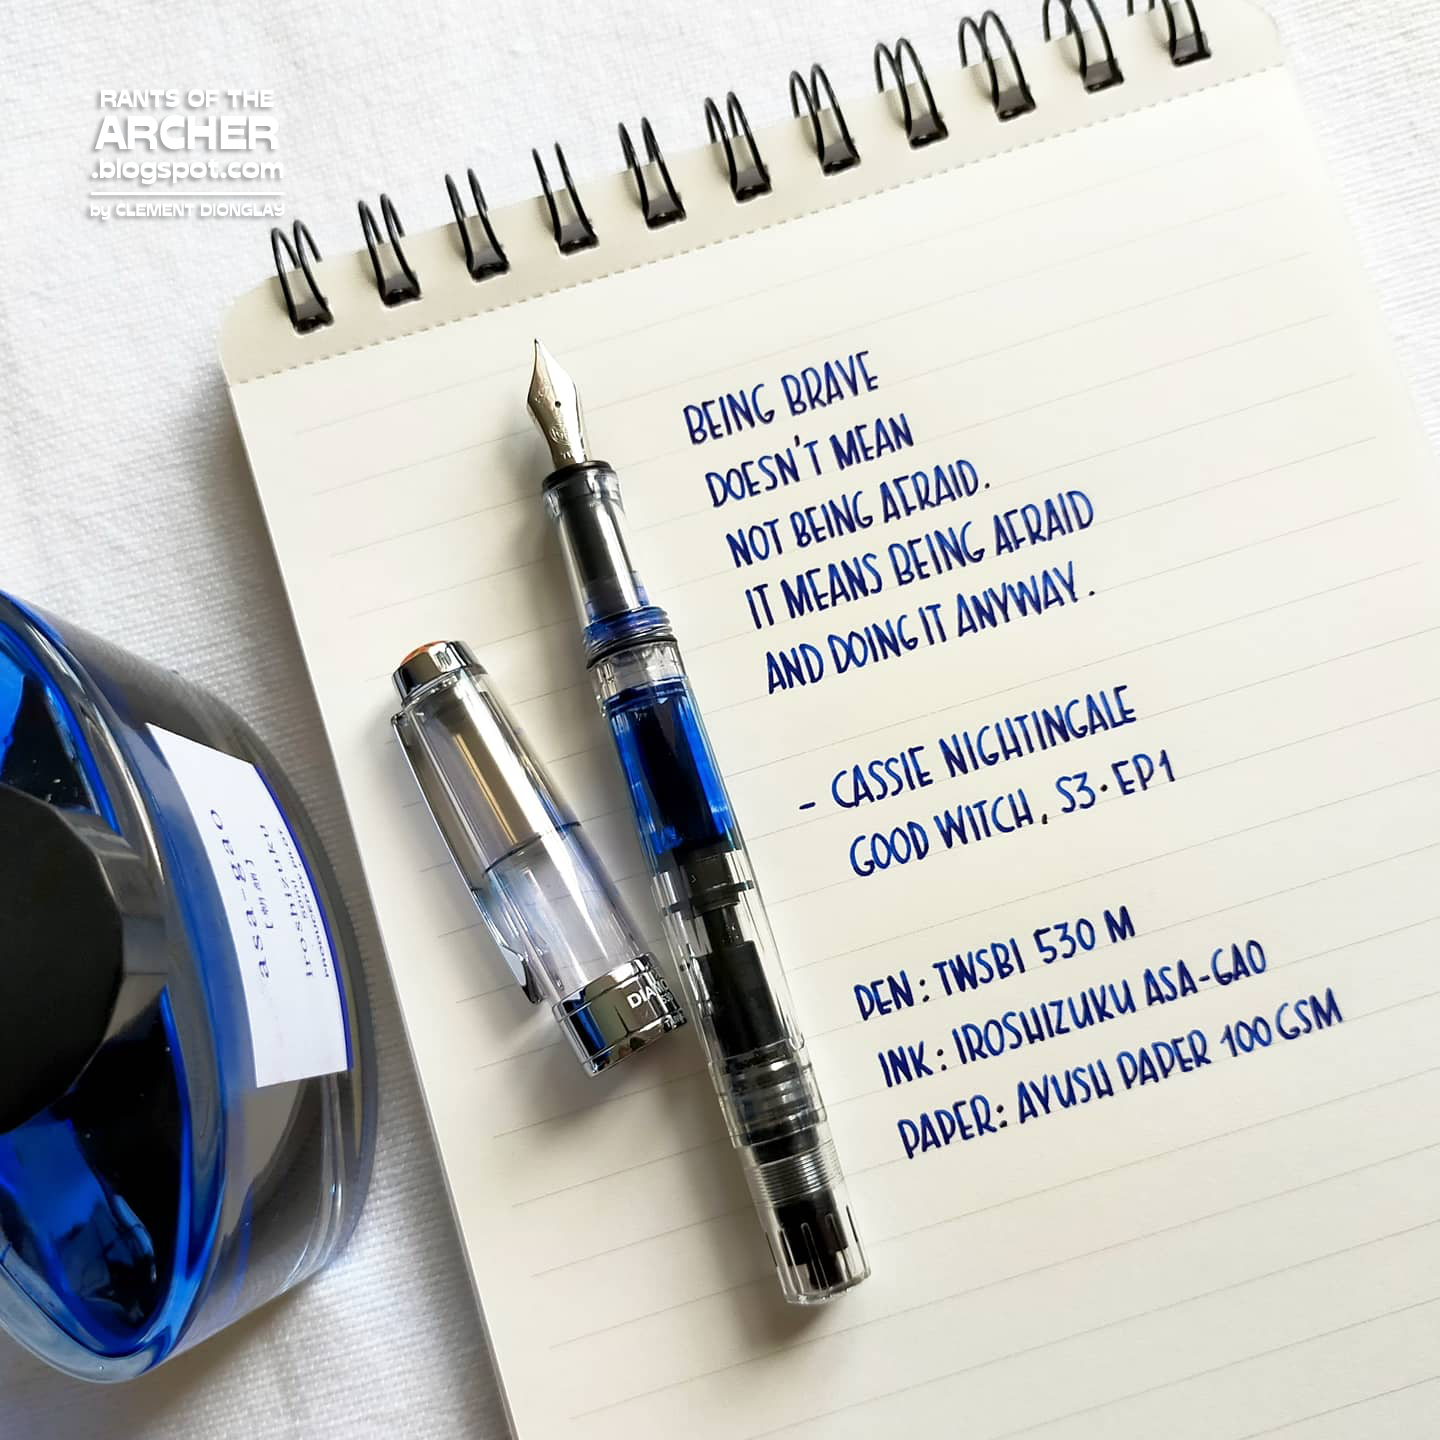 RANTS OF THE
ARCHER
.blogspot.com
by CLEMENT DIONGLAY
BEING BRAVE
DOESN'T MEAN
NOT BEING AFRAID.
IT MEANS BEING AFRAID
AND DOING IT ANYWAY.
- CASSIE NIGHTINGALE
GOOD WITCH, S3·EP1
PEN: TWSBI 530 M
INK: IROSHIZUKU ASA-GAO
PAPER: AYUSH PAPER 100 GSM
asa-gao
[朝顔]
iroshizuku
50ml